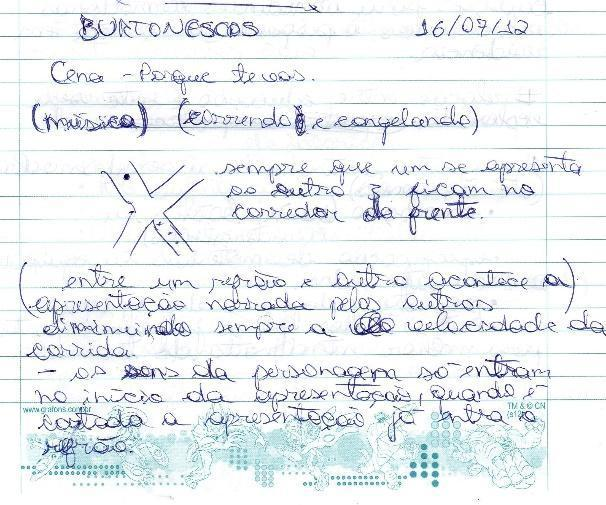 BURTONESCOS 16/07/12
Cena - Porque te vas.
(música) (correndo e congelando)
sempre que um se apresenta
ao outro 3 ficam no
corredor da frente.
(entre um refrão e outro acontece a)
apresentação narrada pelos outros
diminuindo sempre a velocidade da
corrida.
- os sons da personagem só entram
no início da apresentação, quando é
cortada a apresentação já entra o
refrão.
www.grafons.com.br
TM & © CN